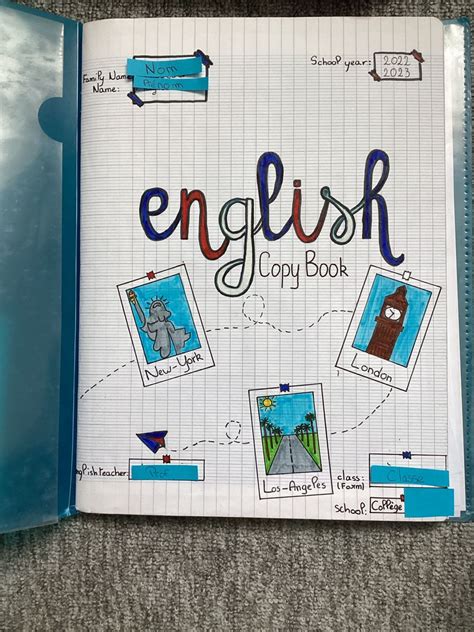 Family Name: Nom
Name: Prénom
School year: 2022
2023
english
Copy Book
New-York
London
Los-Angeles
English teacher:
class: Classe
(Form)
school: Collège